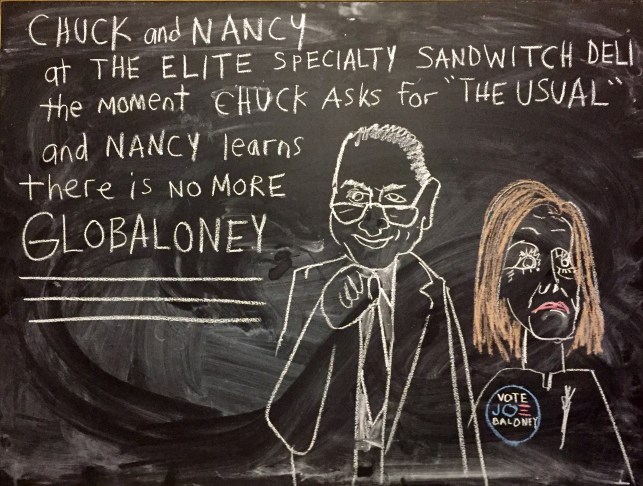 CHUCK and NANCY
at THE ELITE SPECIALTY SANDWITCH DELI
the moment CHUCK Asks for "THE USUAL"
and NANCY learns
there is NO MORE
GLOBALONEY
VOTE
JOE
BALONEY